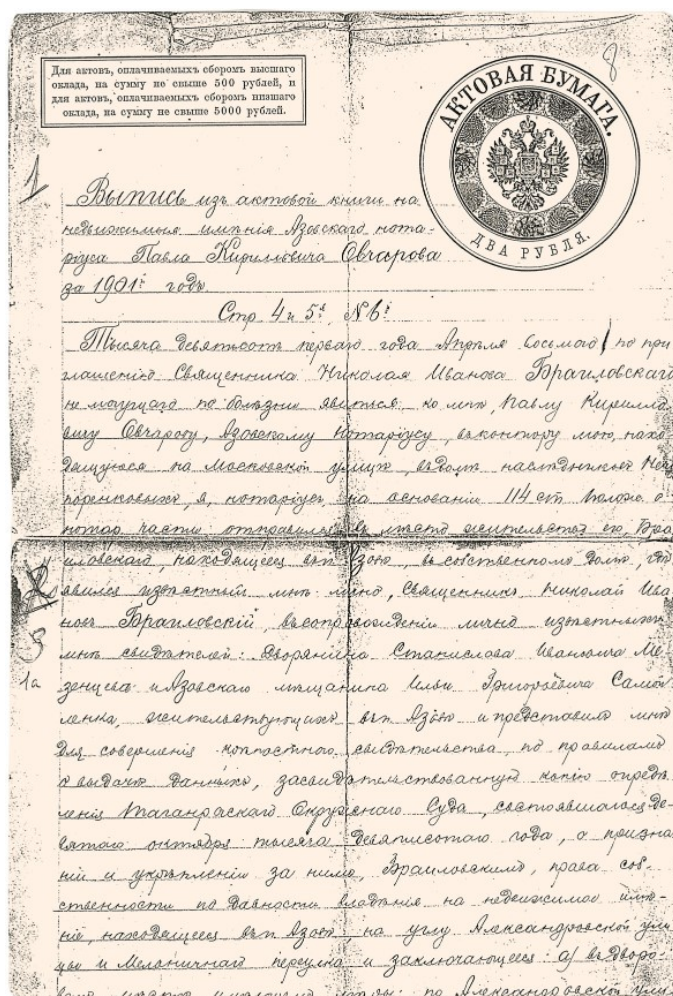 Для актовъ, оплачиваемыхъ сборомъ высшаго
оклада, на сумму не свыше 500 рублей, и
для актовъ, оплачиваемыхъ сборомъ низшаго
оклада, на сумму не свыше 5000 рублей.
АКТОВАЯ БУМАГА.
ДВА РУБЛЯ.
8
1
Выпись изъ актовой книги на
недвижимыя имѣнія Азовскаго нота-
ріуса Павла Кирилловича Овчарова
за 1901й годъ
Стр. 4 и 5я, №
Тысяча девятьсотъ перваго года Апрѣля восьмого по при
глашенію Священника Николая Иванова Браиловскаго
не могущаго по болѣзни явиться ко мнѣ, Павлу Кирилло
вичу Овчарову, Азовскому Нотаріусу, въ контору мою, нахо-
дящуюся на Московской улицѣ, въ домѣ наслѣдниковъ
поренковыхъ, я, нотаріусъ, на основаніи 114 ст. полож. о
нотар. части отправился въ мѣсто жительства его, Бра
иловскаго, находящееся въ г. Азовѣ, въ собственномъ домѣ, гдѣ
явился извѣстный мнѣ лично, Священникъ Николай Ива
новъ Браиловскій, въ сопровожденіи лично извѣстныхъ
мнѣ свидѣтелей: Дворянина Станислава Ивановича Ме
зенцева и Азовскаго мѣщанина Ильи Григорьевича Самой
ленка, жительствующихъ въ г. Азовѣ и представилъ мнѣ
для совершенія крѣпостного свидѣтельства, по правиламъ
о выдачѣ данныхъ, засвидѣтельствованную копію опредѣ
ленія Таганрогскаго Окружнаго Суда, состоявшагося де-
вятаго октября тысяча девятисотаго года, о призна
ніи и укрѣпленіи за нимъ, Браиловскимъ, права соб-
ственности по давности владѣнія на недвижимое имѣ-
ніе, находящееся въ г. Азовѣ на углу Александровской ули
цы и Мельничнаго переулка и заключающееся: а) въ дворо-
вомъ мѣстѣ мѣрою: по Александровской ули
3
1а